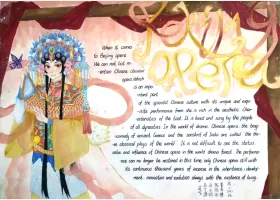 Peking
opera
When it comes
to Beijing opera
We can not but m-
ention Chinese classical
opera which
is an impo-
rtant part
of the splendid Chinese culture with its unique and expr-
essive performance from she is rich in the aesthetic Char-
acteristics of the East. It is loved and sung by the people
of all dynasties. In the world of drama, Chinese opera, the trag-
comedy of ancient Greece and the sanskrit of India are called " the
three classical plays of the world". It is not difficult to see the status
value and influence of Chinese opera in the world drama forest. The performa-
nce can no longer be restored in this time, only Chinese opera still with
its continuous thousand years of inverse in the inheritance, develo-
pment, innovation and evolution always with the existence of living.